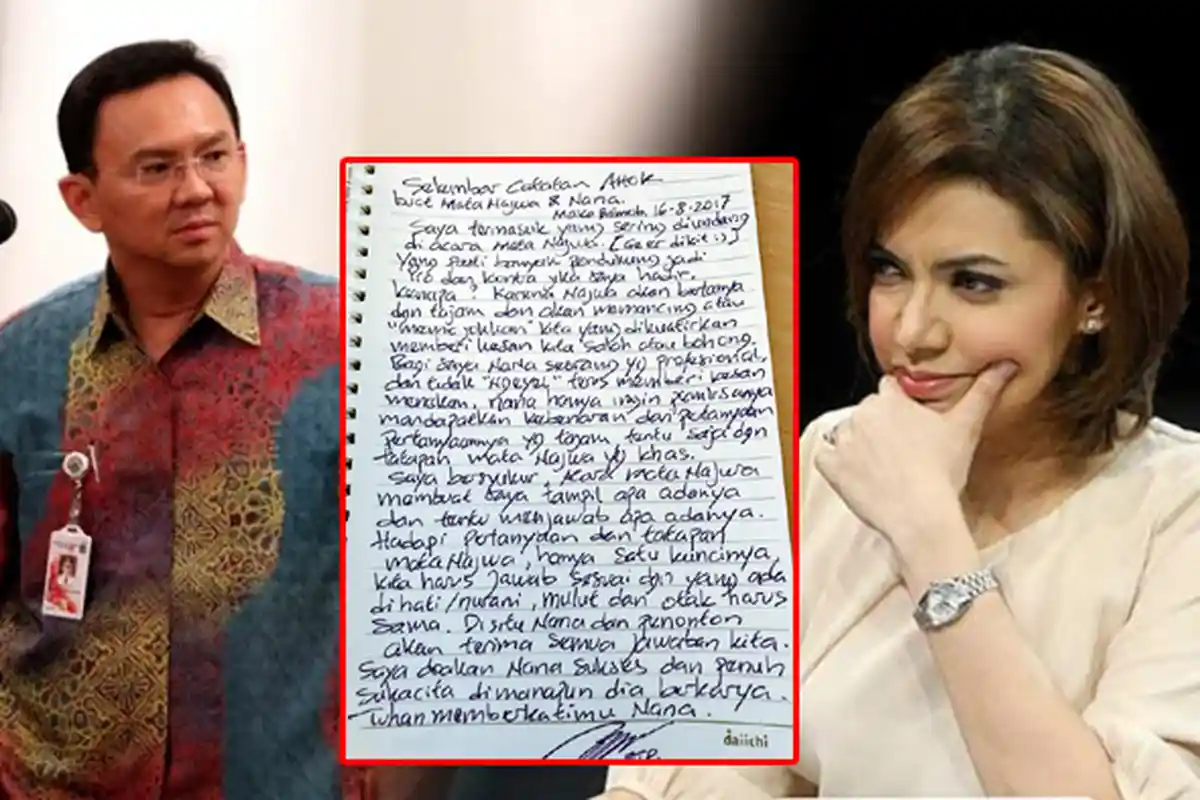 Selembar Catatan Ahok
buat Mata Najwa & Nana.
Mako Brimob, 16-8-2017
Saya termasuk yang sering diundang
di acara Mata Najwa. (Ge er dikit :))
Yang pasti banyak pendukung jadi
pro dan kontra jika saya hadir.
Kenapa? Karena Najwa akan bertanya
dgn tajam dan akan memancing atau
"menjebak" kita yang dikuatirkan
memberi kesan kita salah atau bohong.
Bagi saya Nana seorang yg profesional,
dan tidak "ngeyel" terus memberi kesan
menekan, Nana hanya ingin pemirsanya
mendapatkan kebenaran dari pertanyaan
pertanyaannya yg tajam tentu saja dgn
tatapan mata Najwa yg khas.
Saya bersyukur, acara Mata Najwa
membuat saya tampil apa adanya
dan tentu menjawab apa adanya.
Hadapi pertanyaan dan tatapan
mata Najwa, hanya satu kuncinya,
kita harus jawab sesuai dgn yang ada
di hati/nurani, mulut dan otak harus
sama. Disitu Nana dan penonton
akan terima semua jawaban kita.
Saya doakan Nana sukses dan penuh
sukacita dimanapun dia berkarya.
Tuhan memberkatimu Nana.
BTP.
daiichi